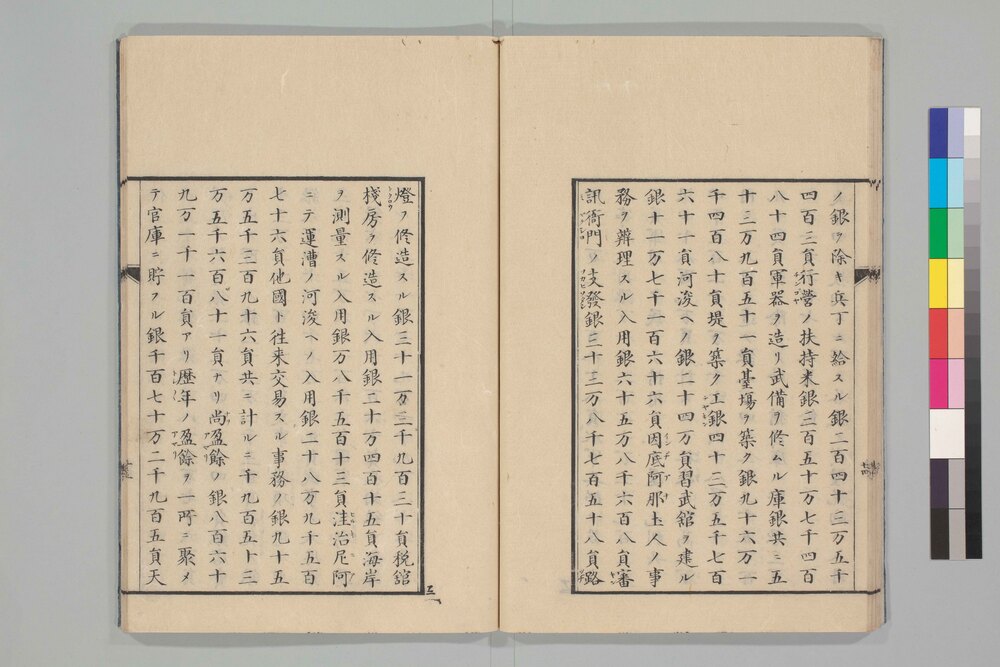 ノ銀ヲ除キ兵丁ニ給スル銀二百四十三万五千
四百三員行営ノ扶持米銀三百五十万七千四百
八十四員軍器ヲ造リ武備ヲ修ムル庫銀共ニ五
十三万九百五十一員臺場ヲ築ク銀九十六万一
千四百八十員堤ヲ築ク工銀四十三万五千七百
六十一員河浚ヘノ銀二十四万員習武舘ヲ建ル
銀十一万七千一百六十六員因底阿那土人ノ事
務ヲ辨理スル入用銀六十五万八千六百八員審
訊衙門ノ支發銀三十三万八千七百五十八員路
燈ヲ修造スル銀三十一万三千九百三十員税舘
棧房ヲ修造スル入用銀二十万四百十五員海岸
ヲ測量スル入用銀万八千五百十三員洼治尼阿
ニテ運漕ノ河浚ヘノ入用銀二十八万九千五百
七十六員他國ト往来交易スル事務ノ銀九十五
万五千三百九十六員共ニ計ルニ千九百五十三
万五千六百八十一員ナリ尚盈餘ノ銀八百六十
九万一千一百員アリ歴年ノ盈餘ヲ一所ニ聚メ
テ官庫ニ貯フル銀千百七十万二千九百五員天
三